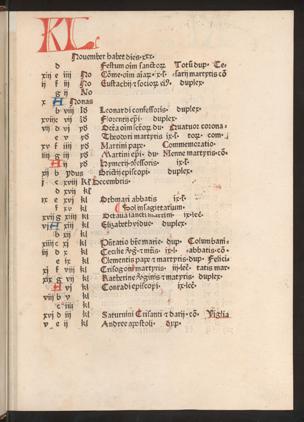 KL
Nouember habet dies·xxx·
d Festum oim sanctorum Totum dup· Ce-
xiij e iiij No Cōme·oim aiarum·ix·l· sarij martyris cō
ij f iij No Eustachij et sociorum duplex·
g ij No
x A Nonas
b viij Id Leonardi confessoris duplex·
xviij c vij Id Florentij epi· duplex·
vij d vj Id Octa oim sctorum du· Quatuor corona-
e v Id Theodori martyris ix·l· torum· com·
xv f iiij Id Martini pape· Commemoratio·
iiij g iij Id Martini epi· du· Menne martyris·cō
A ij Id ix·l·
xij b ydus Brictij episcopi duplex·
j c xviij kl Decembris·
d xvij kl
ix e xvj kl Othmari abbatis ix·l·
f xv kl Sol in sagittarium·
xvij g xiiij kl Octaua sancti martini ix·lec·
vj A xiij kl Elizabeth vidue· duplex·
b xij kl
xiiij c xj kl Pñtatio bte marie· dup· Columbani·
iij d x kl Cecilie ·ix·l· abbatis·cō
e ix kl Clementis pape et martyris·dup· Felici-
xj f viij kl Crisogoni martyris iij·lec· tatis mar-
xix g vij kl Katherine et martyris duplex·
A vj kl Conradi episcopi ix·lec·
viij b v kl
c iiij kl
xvj d iij kl Saturnini Crisanti et darij·cō· Vigilia
v e ij kl Andree apostoli dup·